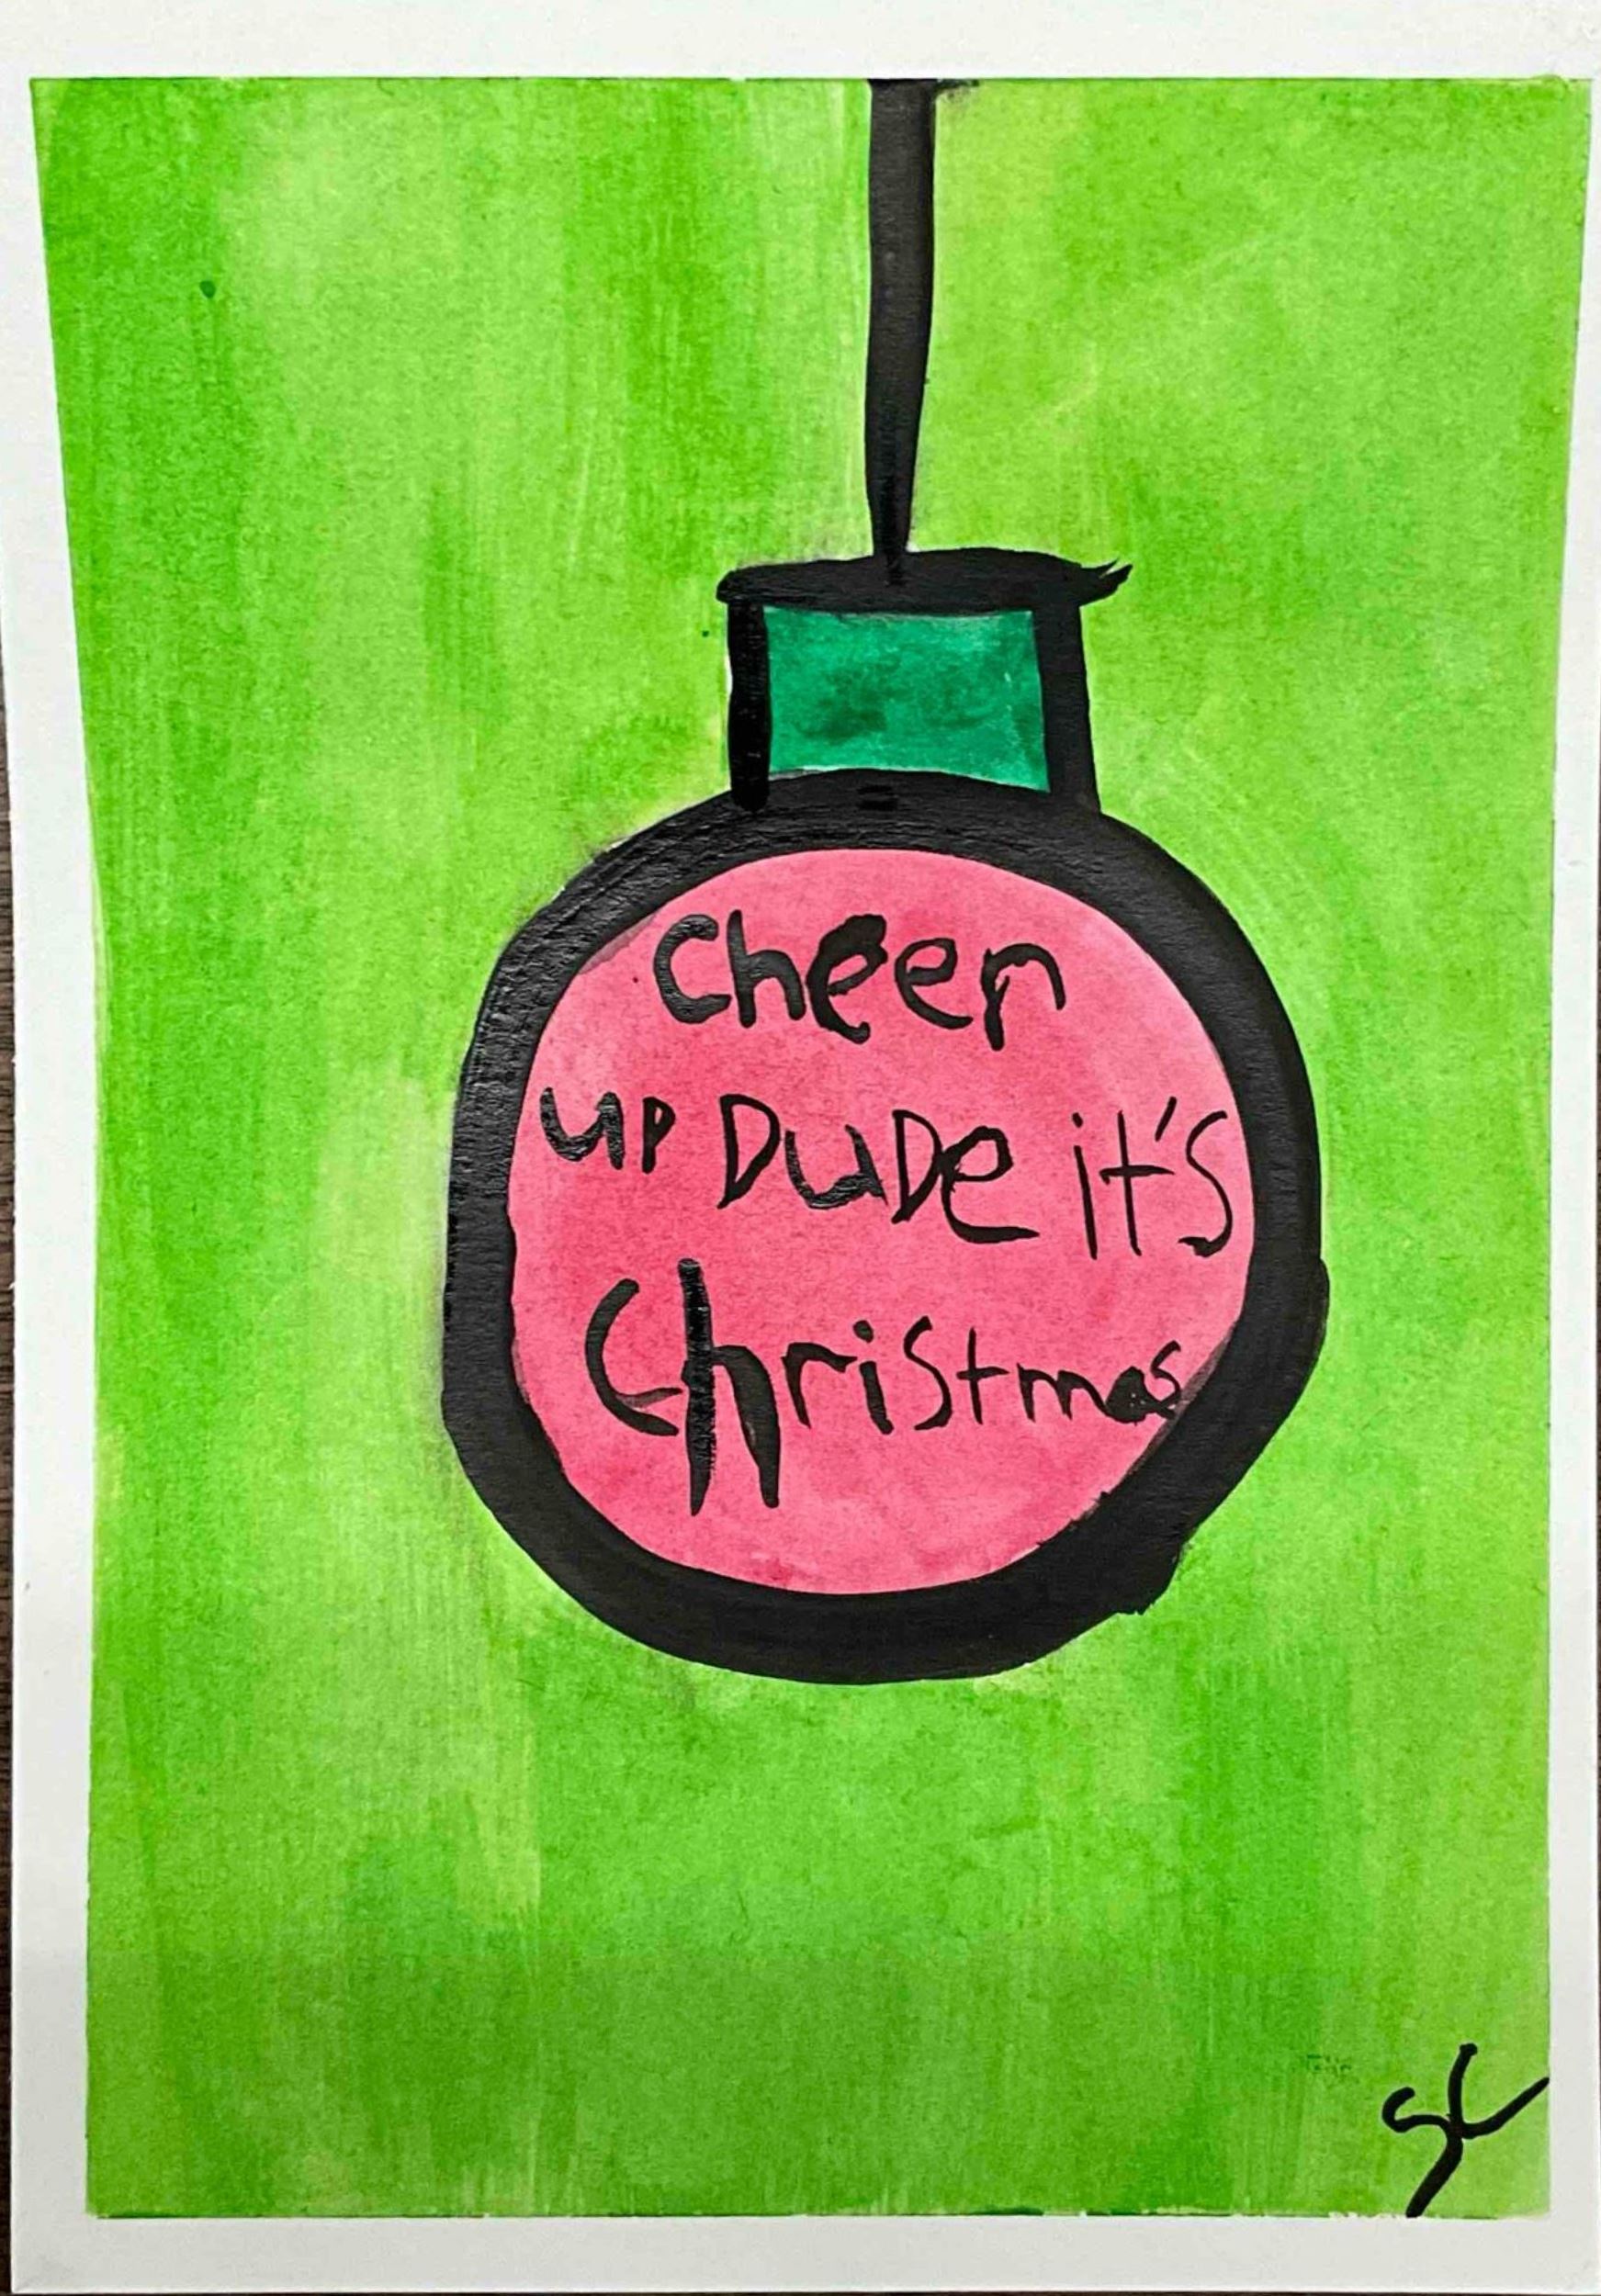 cheer
up DuDe it's
Christmas
SC